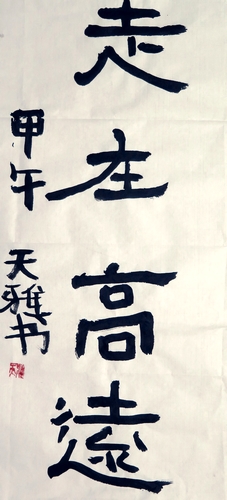 志在高遠
甲午 天雅书